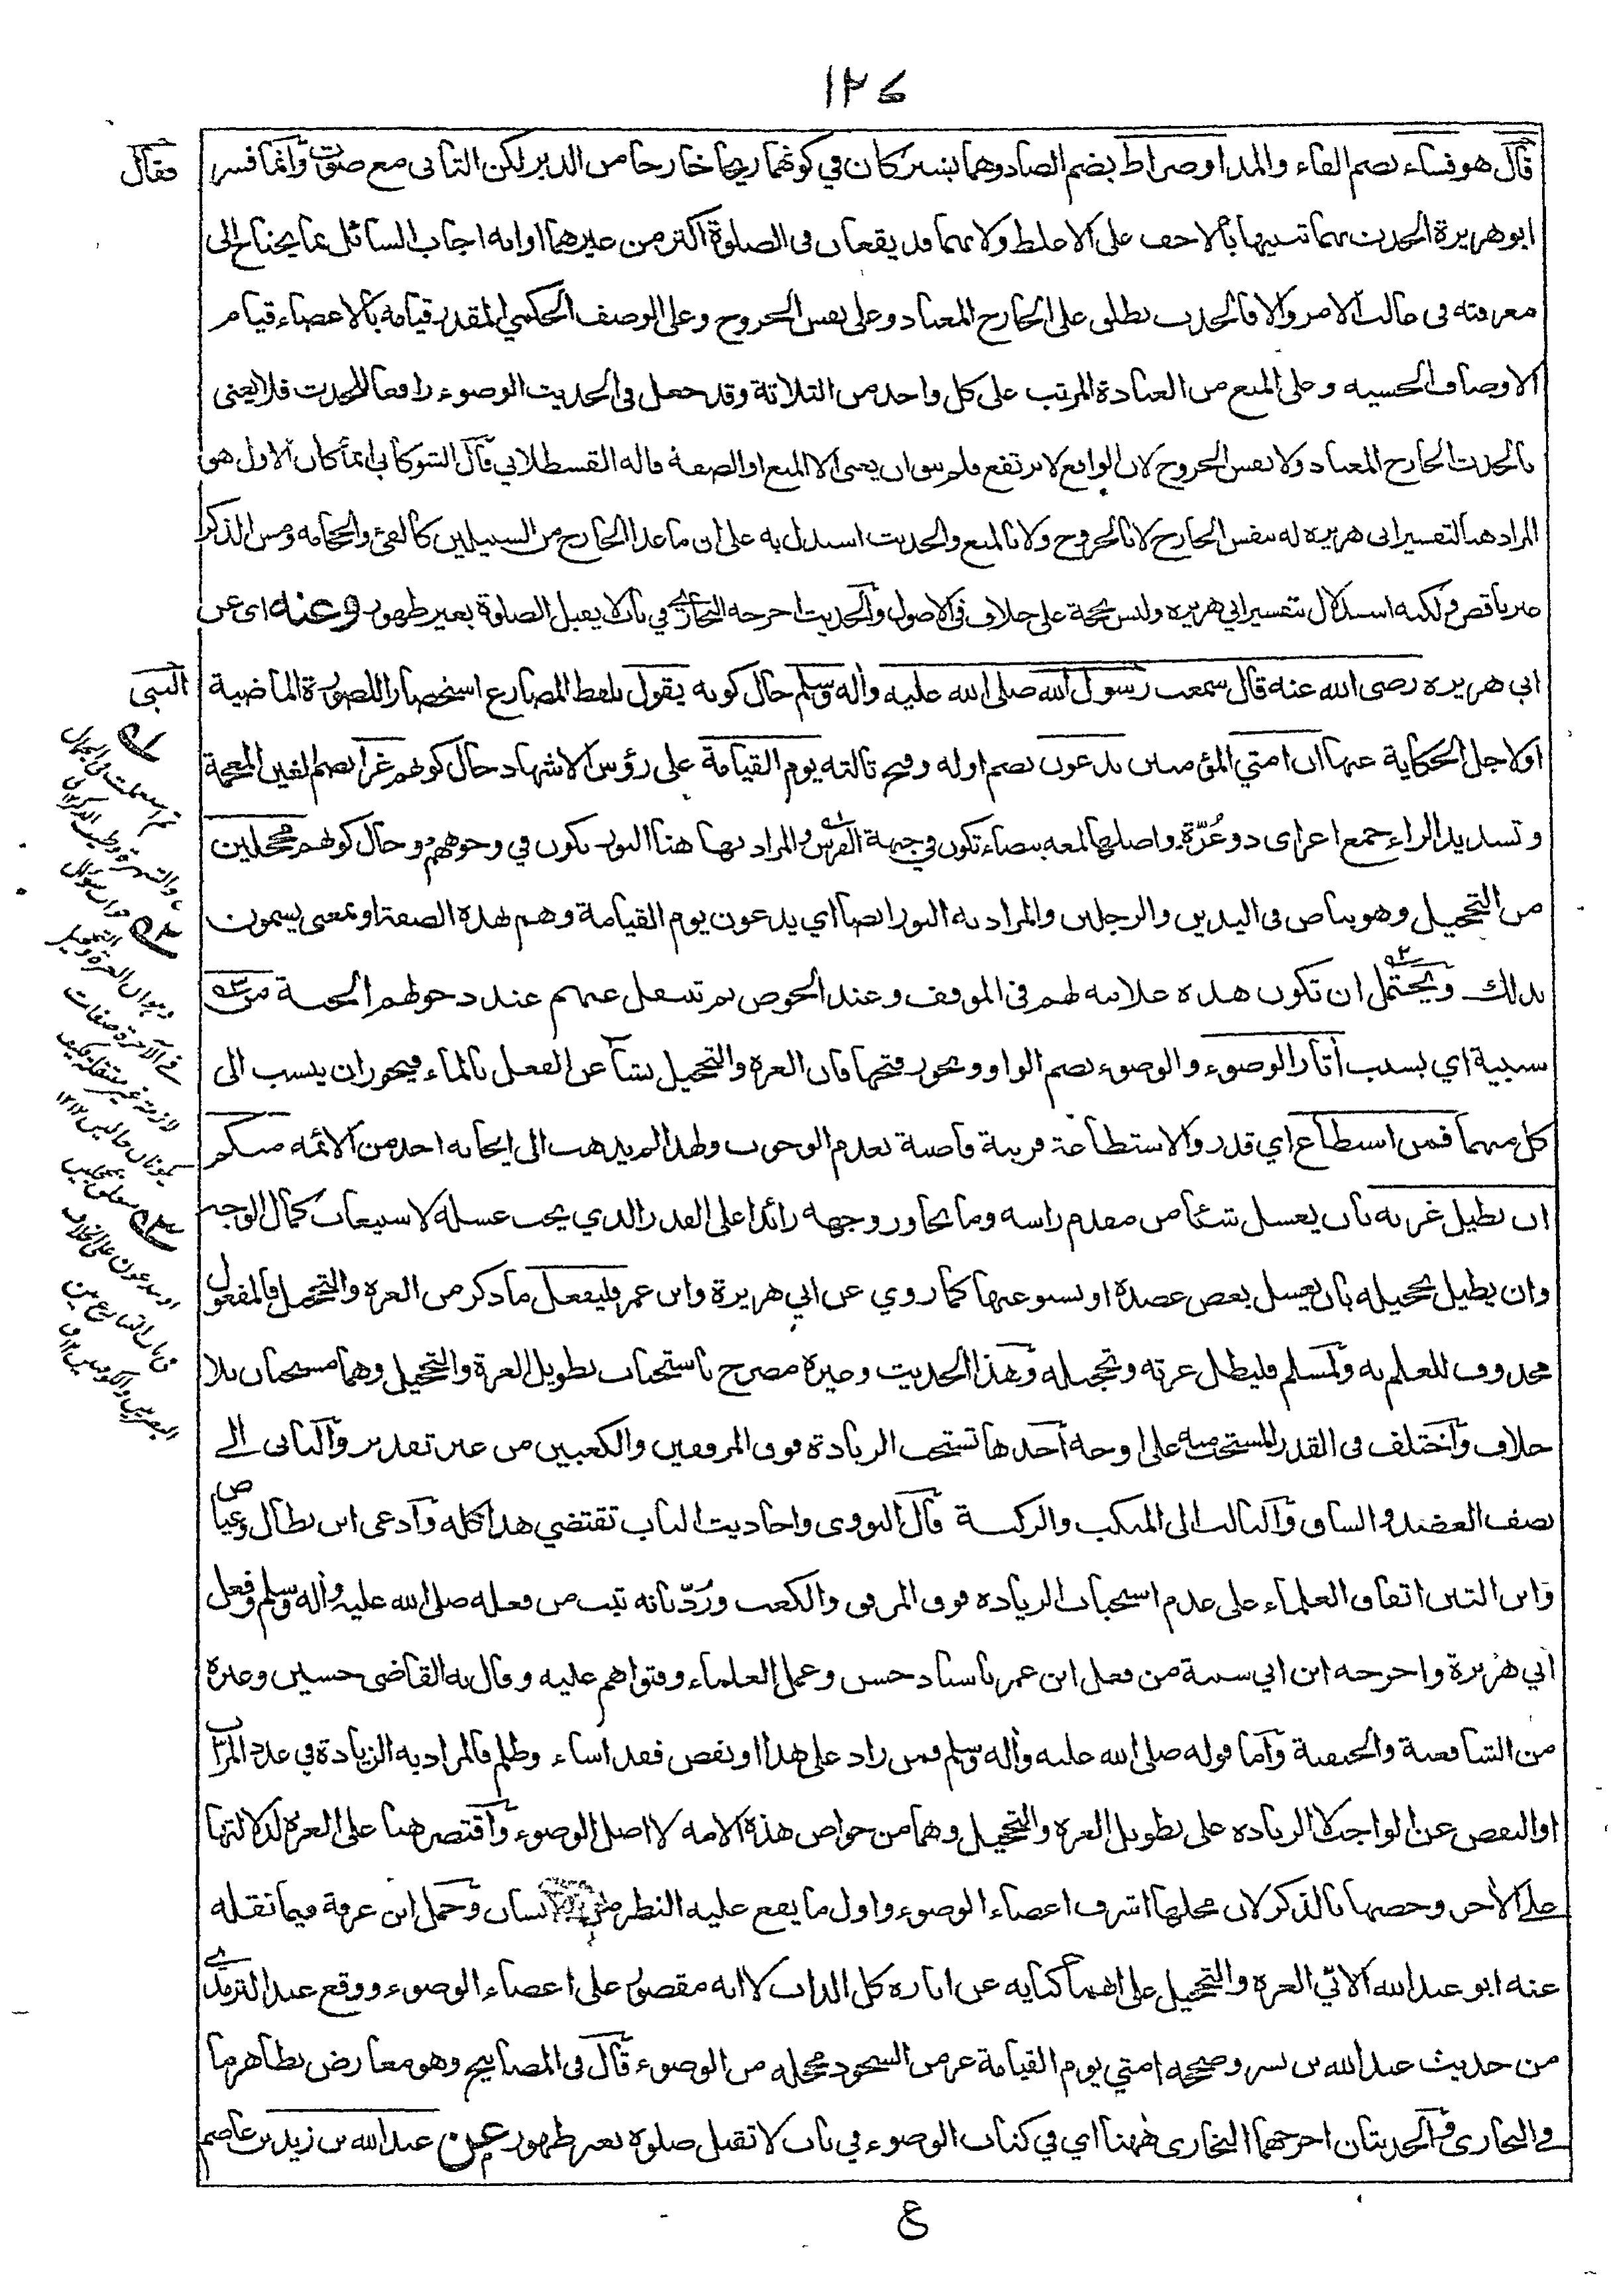 ١٢٤
قال هو فساء بضم الفاء والمد او ضراط بضم الضاد وهما يشتركان في كونهما ريحا خارجا من الدبر لكن الثاني مع صوت وانما فسر
فقال
ابو هريرة الحدث بهما تنبيها بالاخف على الاغلظ ولانهما قد يقعان في الصلوة اكثر من غيرهما او انه اجاب السائل عما يحتاج الى
معرفته في غالب الامر والا فالحدث يطلق على الخارج المعتاد وعلى نفس الخروج وعلى الوصف الحكمي المقدر قيامه بالاعضاء قيام
الاوصاف الحسية وعلى المنع من العبادة المرتب على كل واحد من الثلاثة وقد جعل في الحديث الوضوء رافعا للحدث فلا يعنى
بالحدث الخارج المعتاد ولا نفس الخروج لان الواقع لا يرتفع فلم يبق ان يعنى الا المنع او الصفة قاله القسطلاني قال الشوكاني انما كان الاول هو
المراد هنا لتفسير ابي هريرة له بنفس الخارج لا بالخروج ولا بالمنع والحديث استدل به على ان ما عدا الخارج من السبيلين كالقئ والحجامة ومس الذكر
غير ناقض ولكنه استدلال بتفسير ابي هريرة وليس بحجة على خلاف في الاصول والحديث اخرجه البخاري في باب لا يقبل الصلوة بغير طهور وعنه اى عن
ابي هريرة رضى الله عنه قال سمعت رسول الله صلى الله عليه وأله وسلم حال كونه يقول بلفظ المضارع استحضارا للصورة الماضية
النبى
او لاجل الحكاية عنها ان امتي المؤمنين يدعون بضم اوله وفتح ثالثه يوم القيامة على رؤس الاشهاد حال كونهم غرا بضم الغين المعجمة
وتشديد الراء جمع اغر اى ذو غُرّة واصلها لمعة بيضاء تكون في جبهة الفرس والمراد بها هنا النور يكون في وجوههم وحال كونهم محجلين
من التحجيل وهو بياض في اليدين والرجلين والمراد به النور ايضا اي يدعون يوم القيامة وهم بهذه الصفة او بمعنى يسمون
بذلك ويحتمل ان تكون هذه علامة لهم في الموقف وعند الحوض ثم تنتقل عنهم عند دخولهم الجنة من
سببية اي بسبب أثار الوضوء والوضوء بضم الواو ويجوز فتحها فان الغرة والتحجيل نشأ عن الفعل بالماء فيجوز ان ينسب الى
كل منهما فمن استطاع اي قدر والاستطاعة قرينة قاضية بعدم الوجوب ولهذا لم يذهب الى ايجابه احد من الائمة منكم
ان يطيل غرته بان يغسل شيئا من مقدم راسه وما يجاوز وجهه زائدا على القدر الذي يجب غسله لاستيعاب كمال الوجه
وان يطيل تحجيله بان يغسل بعض عضده او يستوعبها كما روي عن ابي هريرة وابن عمر فليفعل ما ذكر من الغرة والتحجيل فالمفعول
محذوف للعلم به ولمسلم فليطل غرته وتحجيله وهذا الحديث وغيره مصرح باستحباب تطويل الغرة والتحجيل وهما مستحبان بلا
خلاف واختلف في القدر المستحب منه على اوجه احدها تستحب الزيادة فوق المرفقين والكعبين من غير تقدير والثانى الى
نصف العضد والساق والثالث الى المنكب والركبة قال النووى واحاديث الباب تقتضي هذا كله وادعى ابن بطال وعياض
وابن التين اتفاق العلماء على عدم استحباب الزيادة فوق المرفق والكعب ورُدّ بانه ثبت من فعله صلى الله عليه وأله وسلم وفعل
ابي هريرة واخرجه ابن ابي شيبة من فعل ابن عمر باسناد حسن وعمل العلماء وفتواهم عليه وقال به القاضى حسين وغيره
من الشافعية والحنفية واما قوله صلى الله عليه وأله وسلم فمن زاد على هذا او نقص فقد اساء وظلم فالمراد به الزيادة في عدد المرات
او النقص عن الواجب لا الزيادة على تطويل الغرة والتحجيل وهما من خواص هذه الامة لا اصل الوضوء واقتصر هنا على الغرة لدلالتها
على الاخر وخصها بالذكر لان محلها اشرف اعضاء الوضوء واول ما يقع عليه النظر من الانسان وحمل ابن عرفة فيما نقله
عنه ابو عبد الله الابّي الغرة والتحجيل على انهما كناية عن انارة كل الذات لا انه مقصور على اعضاء الوضوء ووقع عند الترمذي
من حديث عبد الله بن بسر وصححه امتي يوم القيامة غر من السجود محجلة من الوضوء قال في المصابيح وهو معارض بظاهر ما
في البخارى والحديثان اخرجهما البخارى ههنا اي في كتاب الوضوء في باب لا تقبل صلوة بغير طهور عن عبد الله بن زيد بن عاصم
ع